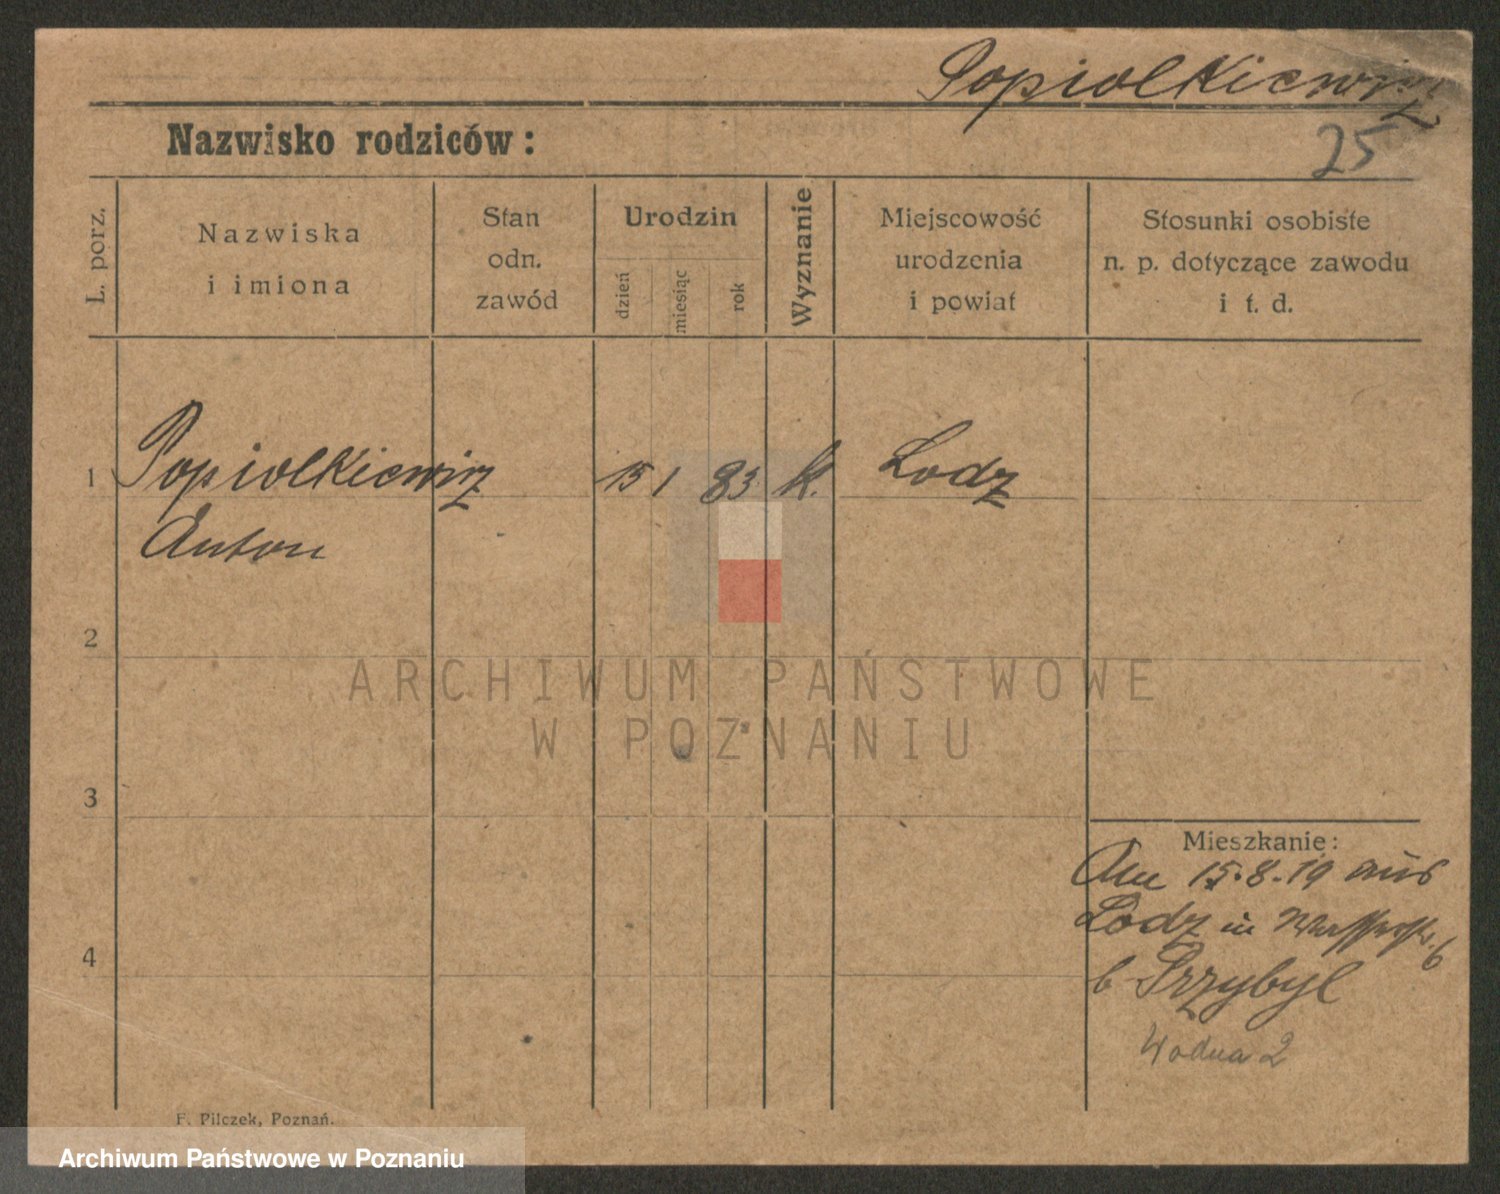 Popiolkiewicz
Nazwisko rodziców:
25
L. porz.
Nazwiska
i imiona
Stan
odn.
zawód
Urodzin
dzień
miesiąc
rok
Wyznanie
Miejscowość
urodzenia
i powiat
Stosunki osobiste
n. p. dotyczące zawodu
i t. d.
1 Popiolkiewicz 15 1 83 k. Lodz
Anton
2
ARCHIWUM PAŃSTWOWE
W POZNANIU
3
Mieszkanie:
Am 15.8.19 aus
Lodz in Wasserstr. 6
4
b Przybyl
Wodna 2
F. Pilczek, Poznań.
Archiwum Państwowe w Poznaniu